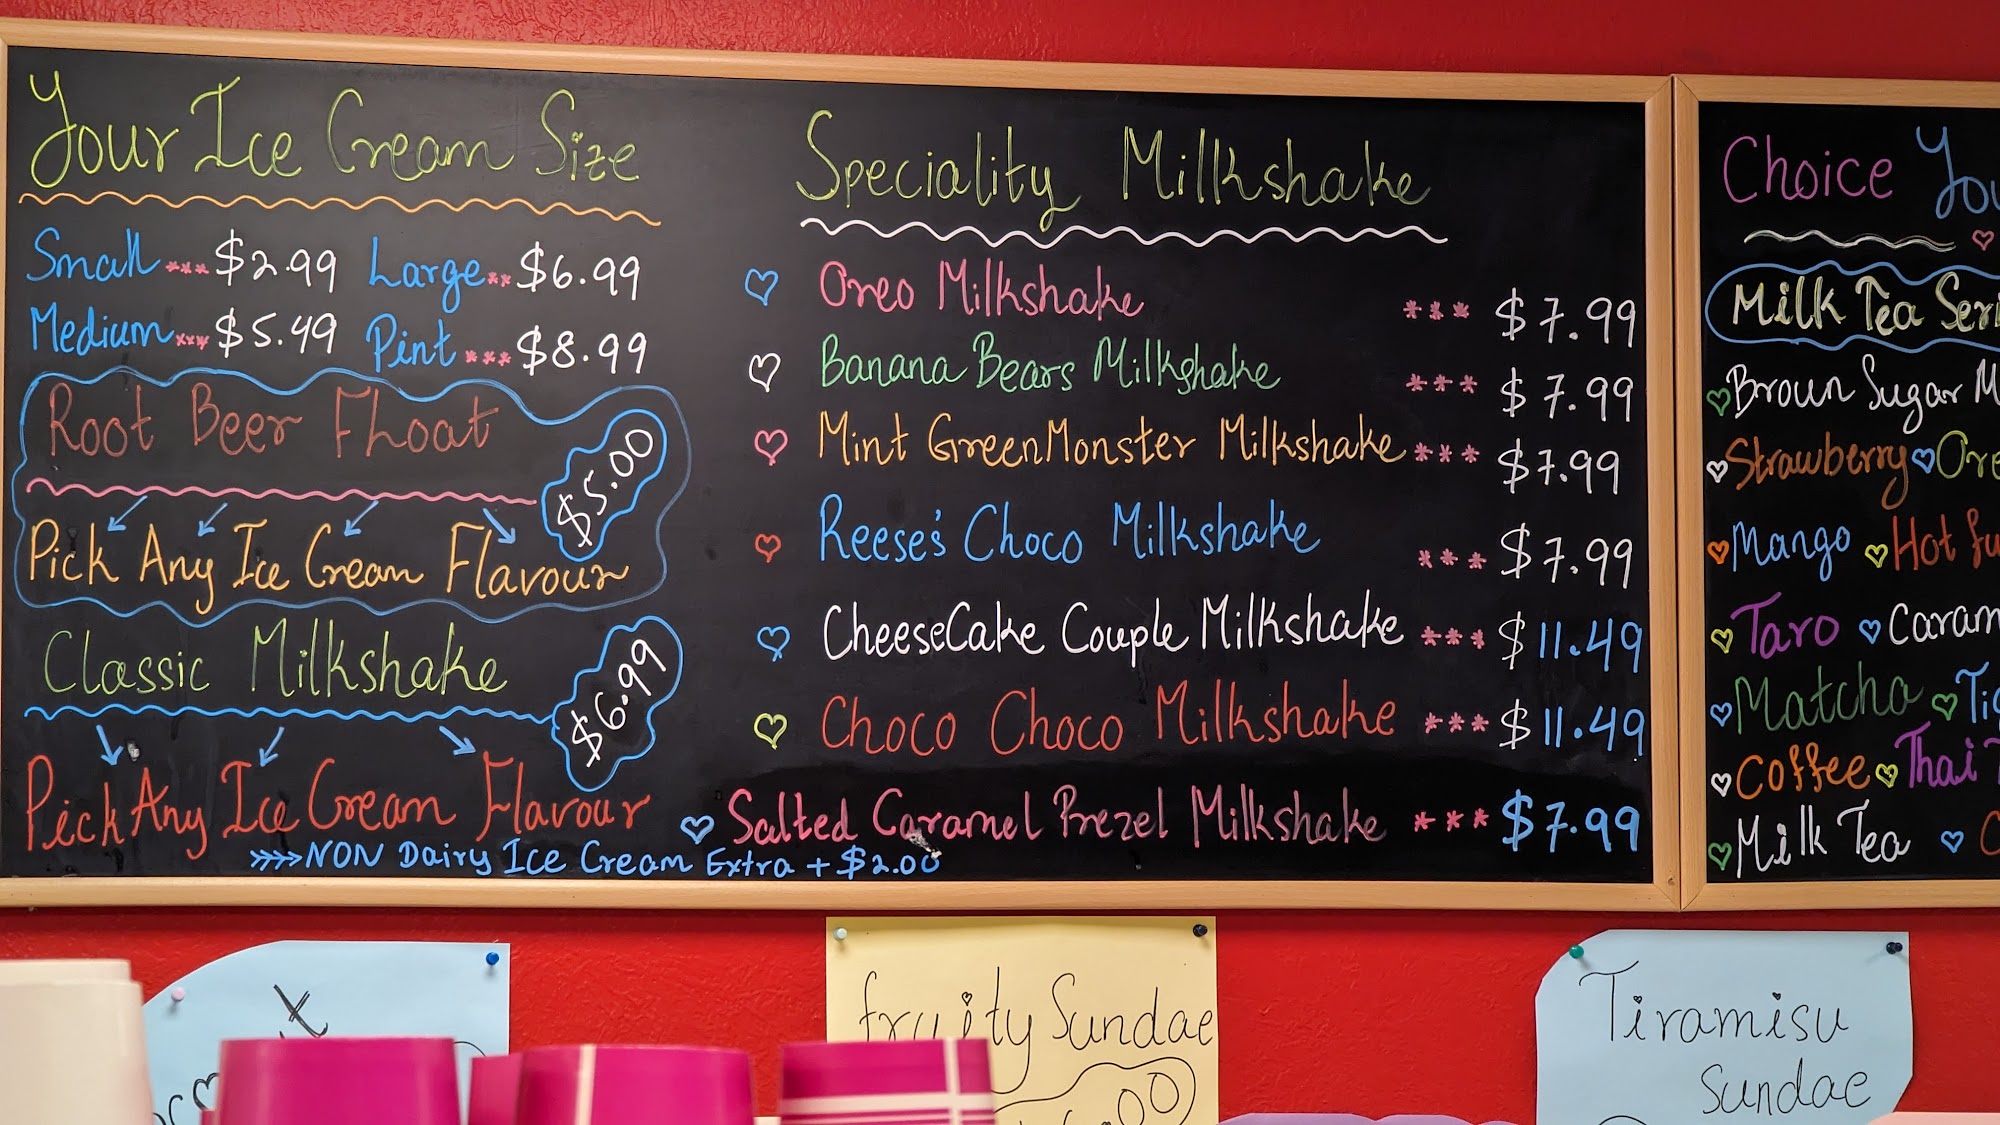 Your Ice Cream Size
Small *** $2.99 Large ** $6.99
Medium *** $5.49 Pint *** $8.99
Root Beer Float
$5.00
Pick Any Ice Cream Flavour
Classic Milkshake
$6.99
Pick Any Ice Cream Flavour
>>>> NON Dairy Ice Cream Extra + $2.00
Speciality Milkshake
Oreo Milkshake *** $7.99
Banana Bears Milkshake *** $7.99
Mint GreenMonster Milkshake *** $7.99
Reese's Choco Milkshake *** $7.99
CheeseCake Couple Milkshake *** $11.49
Choco Choco Milkshake *** $11.49
Salted Caramel Prezel Milkshake *** $7.99
Choice
Milk Tea
Brown Sugar
Strawberry
Mango Hot
Taro
Matcha
Coffee Thai
Milk Tea
fruity Sundae
Tiramisu
Sundae